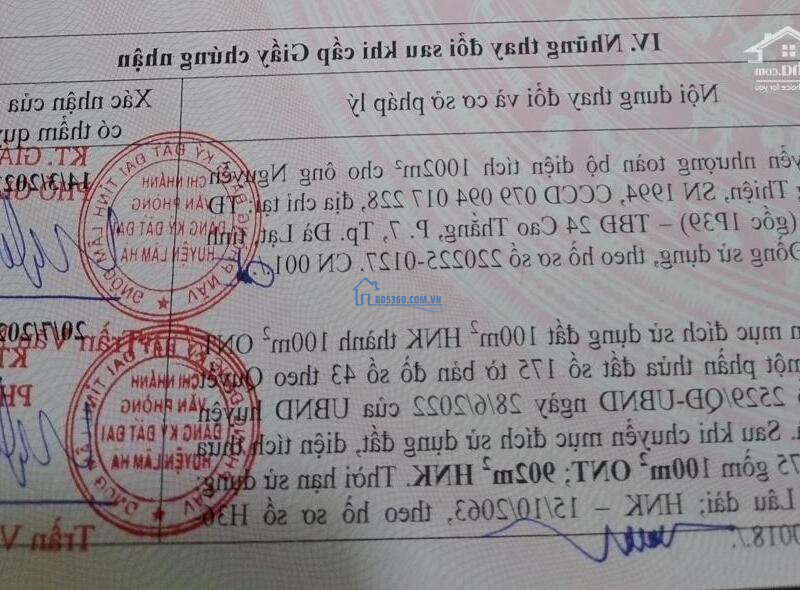 IV. Những thay đổi sau khi cấp Giấy chứng nhận
Nội dung thay đổi và cơ sở pháp lý
Xác nhận của
có thẩm quy
yển nhượng toàn bộ diện tích 1002m² cho ông Nguyễn
Thiện, SN 1994, CCCD 079 094 017 228, địa chỉ tại: TĐ
(gốc 1P39) – TBĐ 24 Cao Thắng, P. 7, Tp. Đà Lạt, tỉnh
Đồng sử dụng, theo hồ sơ số 220225-0127. CN 001./.
14/3/202
KT. GIÁ
PHÓ G
n mục đích sử dụng đất 100m² HNK thành 100m² ONT
một phần thửa đất số 175 tờ bản đồ số 43 theo Quyết
2529/QĐ-UBND ngày 28/6/2022 của UBND huyện
. Sau khi chuyển mục đích sử dụng đất, diện tích thửa
75 gồm 100m² ONT; 902m² HNK. Thời hạn sử dụng:
Lâu dài; HNK – 15/10/2063, theo, hồ sơ số H36
0018./.
Trần Vă
20/7/202
KT
PH
Trần V
VĂN PHÒNG ĐĂNG KÝ ĐẤT ĐAI TỈNH LÂM ĐỒNG
CHI NHÁNH
VĂN PHÒNG
ĐĂNG KÝ ĐẤT ĐAI
HUYỆN LÂM HÀ
VĂN PHÒNG ĐĂNG KÝ ĐẤT ĐAI TỈNH LÂM ĐỒNG
CHI NHÁNH
VĂN PHÒNG
ĐĂNG KÝ ĐẤT ĐAI
HUYỆN LÂM HÀ
BDS360.COM.VN
.com
choice for you